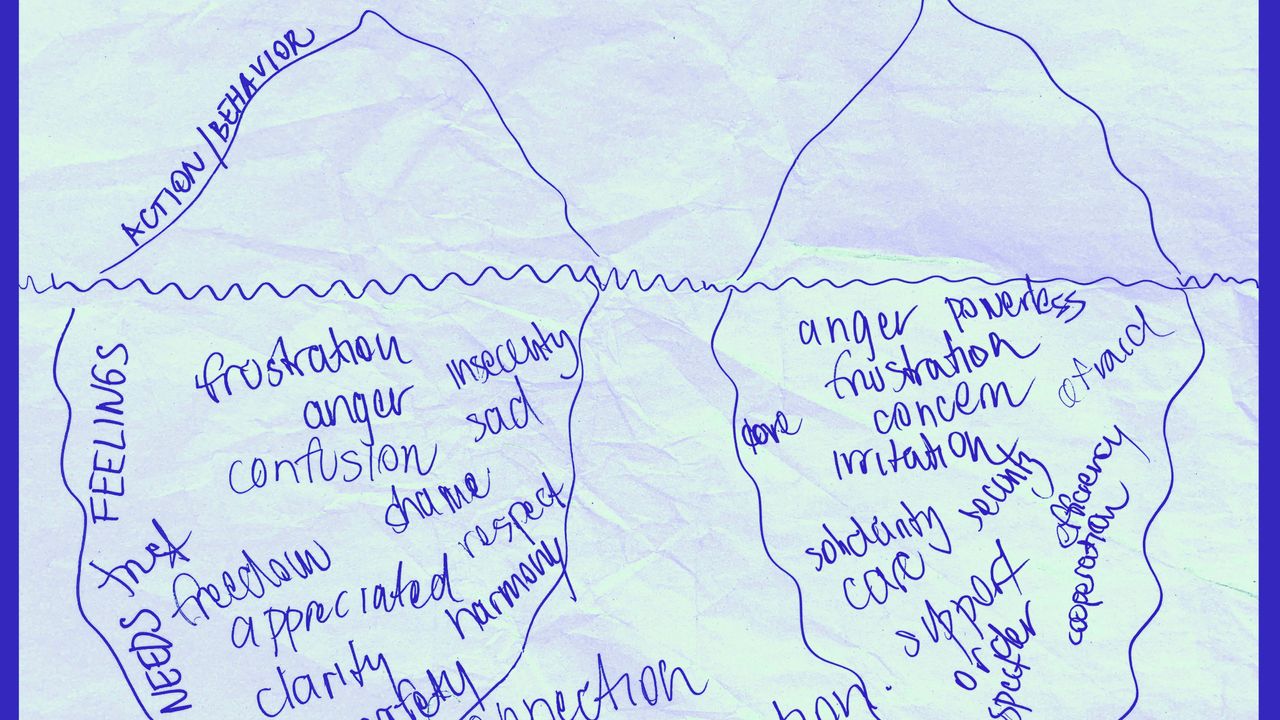 ACTION/BEHAVIOR
FEELINGS
frustration
anger
insecurity
confusion
sad
shame
NEEDS
trust
freedom
respect
appreciated
harmony
clarity
anger powerless
frustration
concern
afraid
irritation
solidarity security
care
support
order
efficiency
cooperation